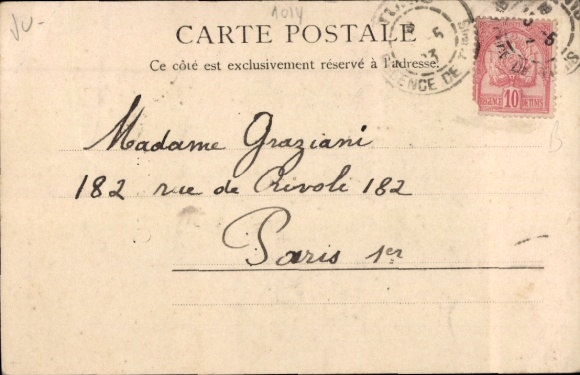 1014
CARTE POSTALE
Ce côté est exclusivement réservé à l'adresse.
RÉGENCE 10 DE TUNIS
Madame Graziani
182 rue de Rivoli 182
Paris 1er